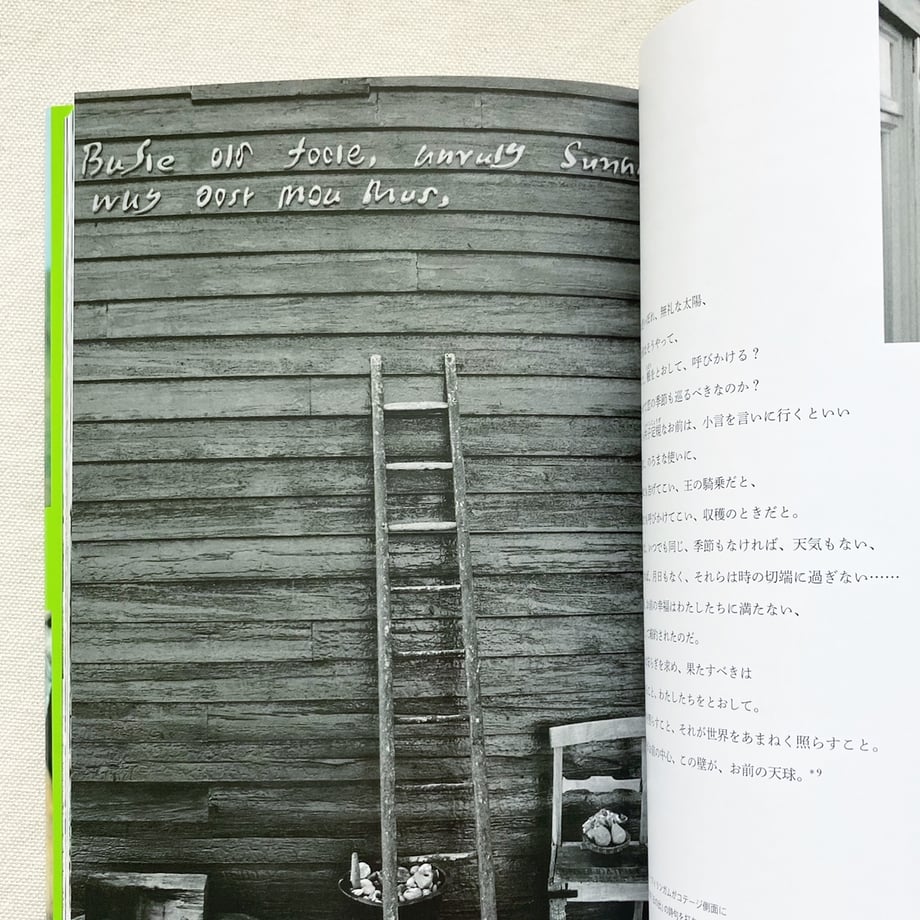 Busie old foole, unruly Sunn
why dost thou thus,
無礼な太陽、
そうやって、
をとおして、呼びかける？
の季節も巡るべきなのか？
なお前は、小言を言いに行くといい
のろまな使いに、
げてこい、王の騎乗だと、
呼びかけてこい、収穫のときだと。
いつでも同じ、季節もなければ、天気もない、
月日もなく、それらは時の切端に過ぎない……
の幸福はわたしたちに満たない、
されたのだ。
らぎを求め、果たすべきは
こと、わたしたちをとおして。
らすこと、それが世界をあまねく照らすこと。
の中心、この壁が、お前の天球。*9
ンガムがコテージ側面に